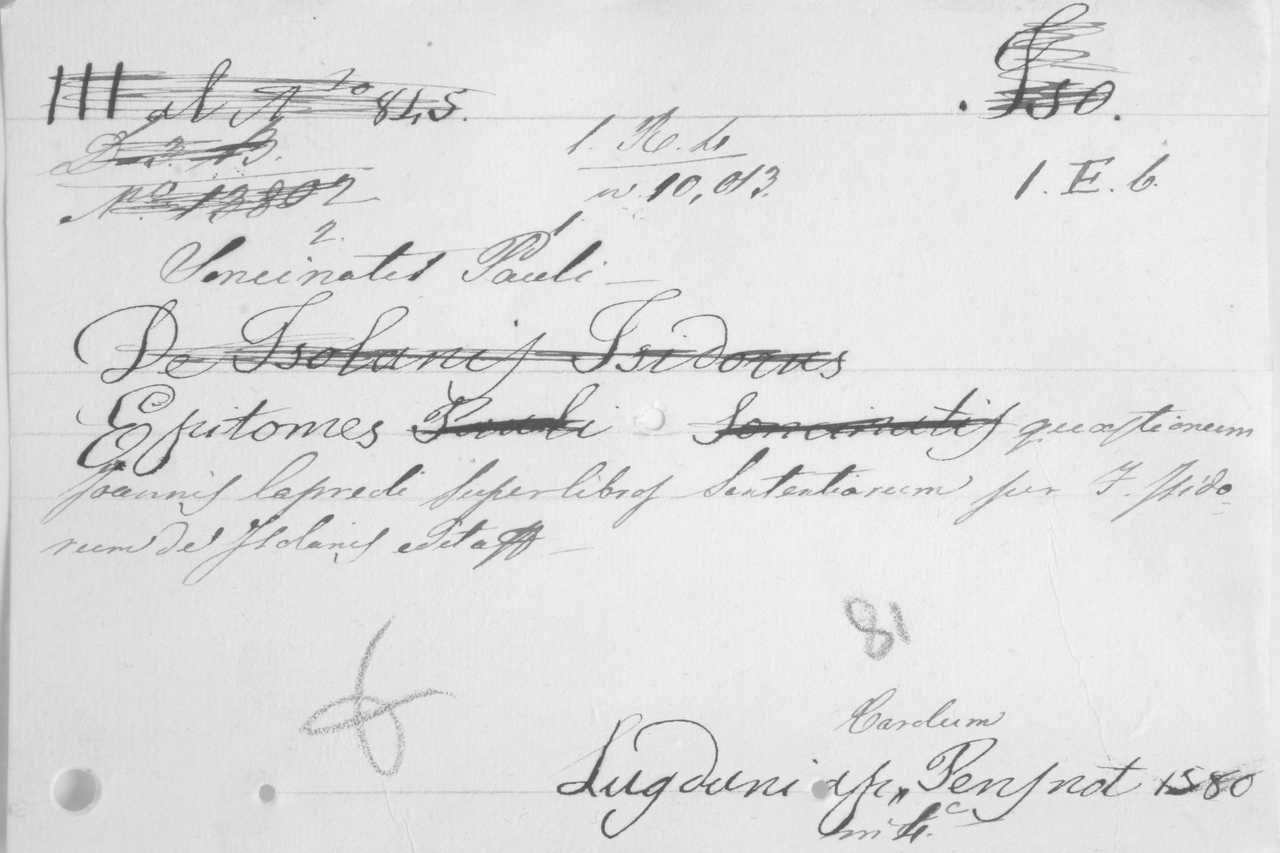 III al A to 845. 150.
D 3 13. 1. R. 4
No 13802 n. 10,013. 1. E. 6.
2. 1.
Soncinatis Pauli —
De Isolanis Isidorus
Epitomes Pauli Soncinatis quæstionum
Joannis Capreoli super libros Sententiarum per F. Isido-
rum de Isolanis edita —
81
Carolum
Lugduni ap„ Pensnot 1580
in 4.